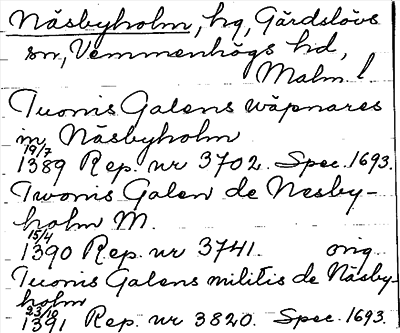 Näsbyholm, hg, Gärdslövs
sn, Vemmenhögs hd,
Malm. l.
Tuonis Galens wäpnares
in Näsbyholm
19/7
1389 Rep. nr 3702. Spec. 1693.
Twonis Galen de Nesby-
holm M.
15/4
1390 Rep. nr 3741. orig.
Tuonis Galens militis de Näsby-
holm
23/10
1391 Rep. nr 3820. Spec. 1693.